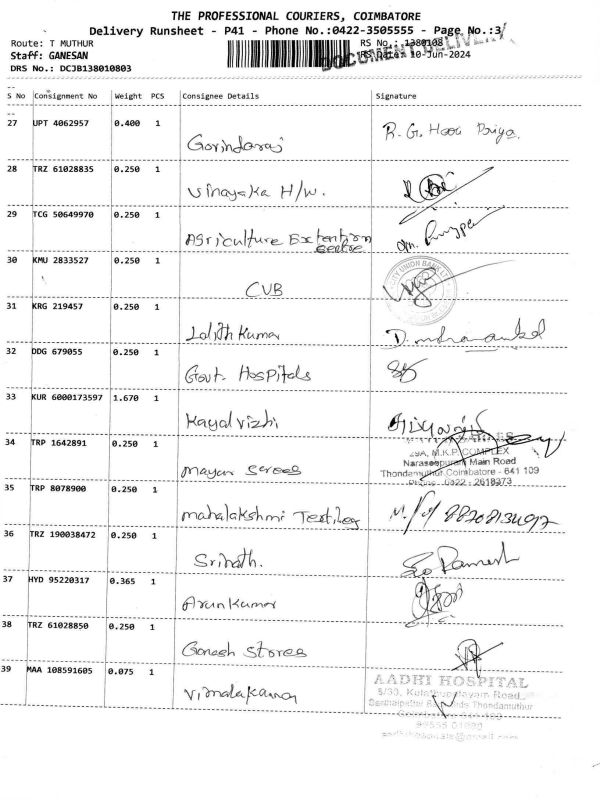 THE PROFESSIONAL COURIERS, COIMBATORE
Delivery Runsheet - P41 - Phone No.:0422-3505555 - Page No.:3/
Route: T MUTHUR
RS No.: 1380108
Staff: GANESAN
RS Date: 10-Jun-2024
DOCUMENT DELIVERY
DRS No.: DCJB138010803
S No Consignment No Weight PCS Consignee Details Signature
27 UPT 4062957 0.400 1
Govindaraj
28 TRZ 61028835 0.250 1
Vinayaka H/w.
29 TCG 50649970 0.250 1
Agriculture Extention
centre
30 KMU 2833527 0.250 1
CUB
CITY UNION BANK LTD
31 KRG 219457 0.250 1
Lalith Kumar
32 DDG 679055 0.250 1
Govt. Hospitals
33 KUR 6000173597 1.670 1
Kayalvizhi
34 TRP 1642891 0.250 1
29A, M.K.P. COMPLEX
Naraseepuram Main Road
Thondamuthur, Coimbatore - 641 109
Phone : 0422 - 2618373
Mayan Sarees
35 TRP 8078900 0.250 1
Mahalakshmi Textiles
36 TRZ 190038472 0.250 1
Srinath.
Ramesh
37 HYD 95220317 0.365 1
Arunkumar
38 TRZ 61028850 0.250 1
Ganesh Stores
39 MAA 108591605 0.075 1
Vimalakannan
AADHI HOSPITAL
5/30, Kulathupalayam Road
Thondamuthur